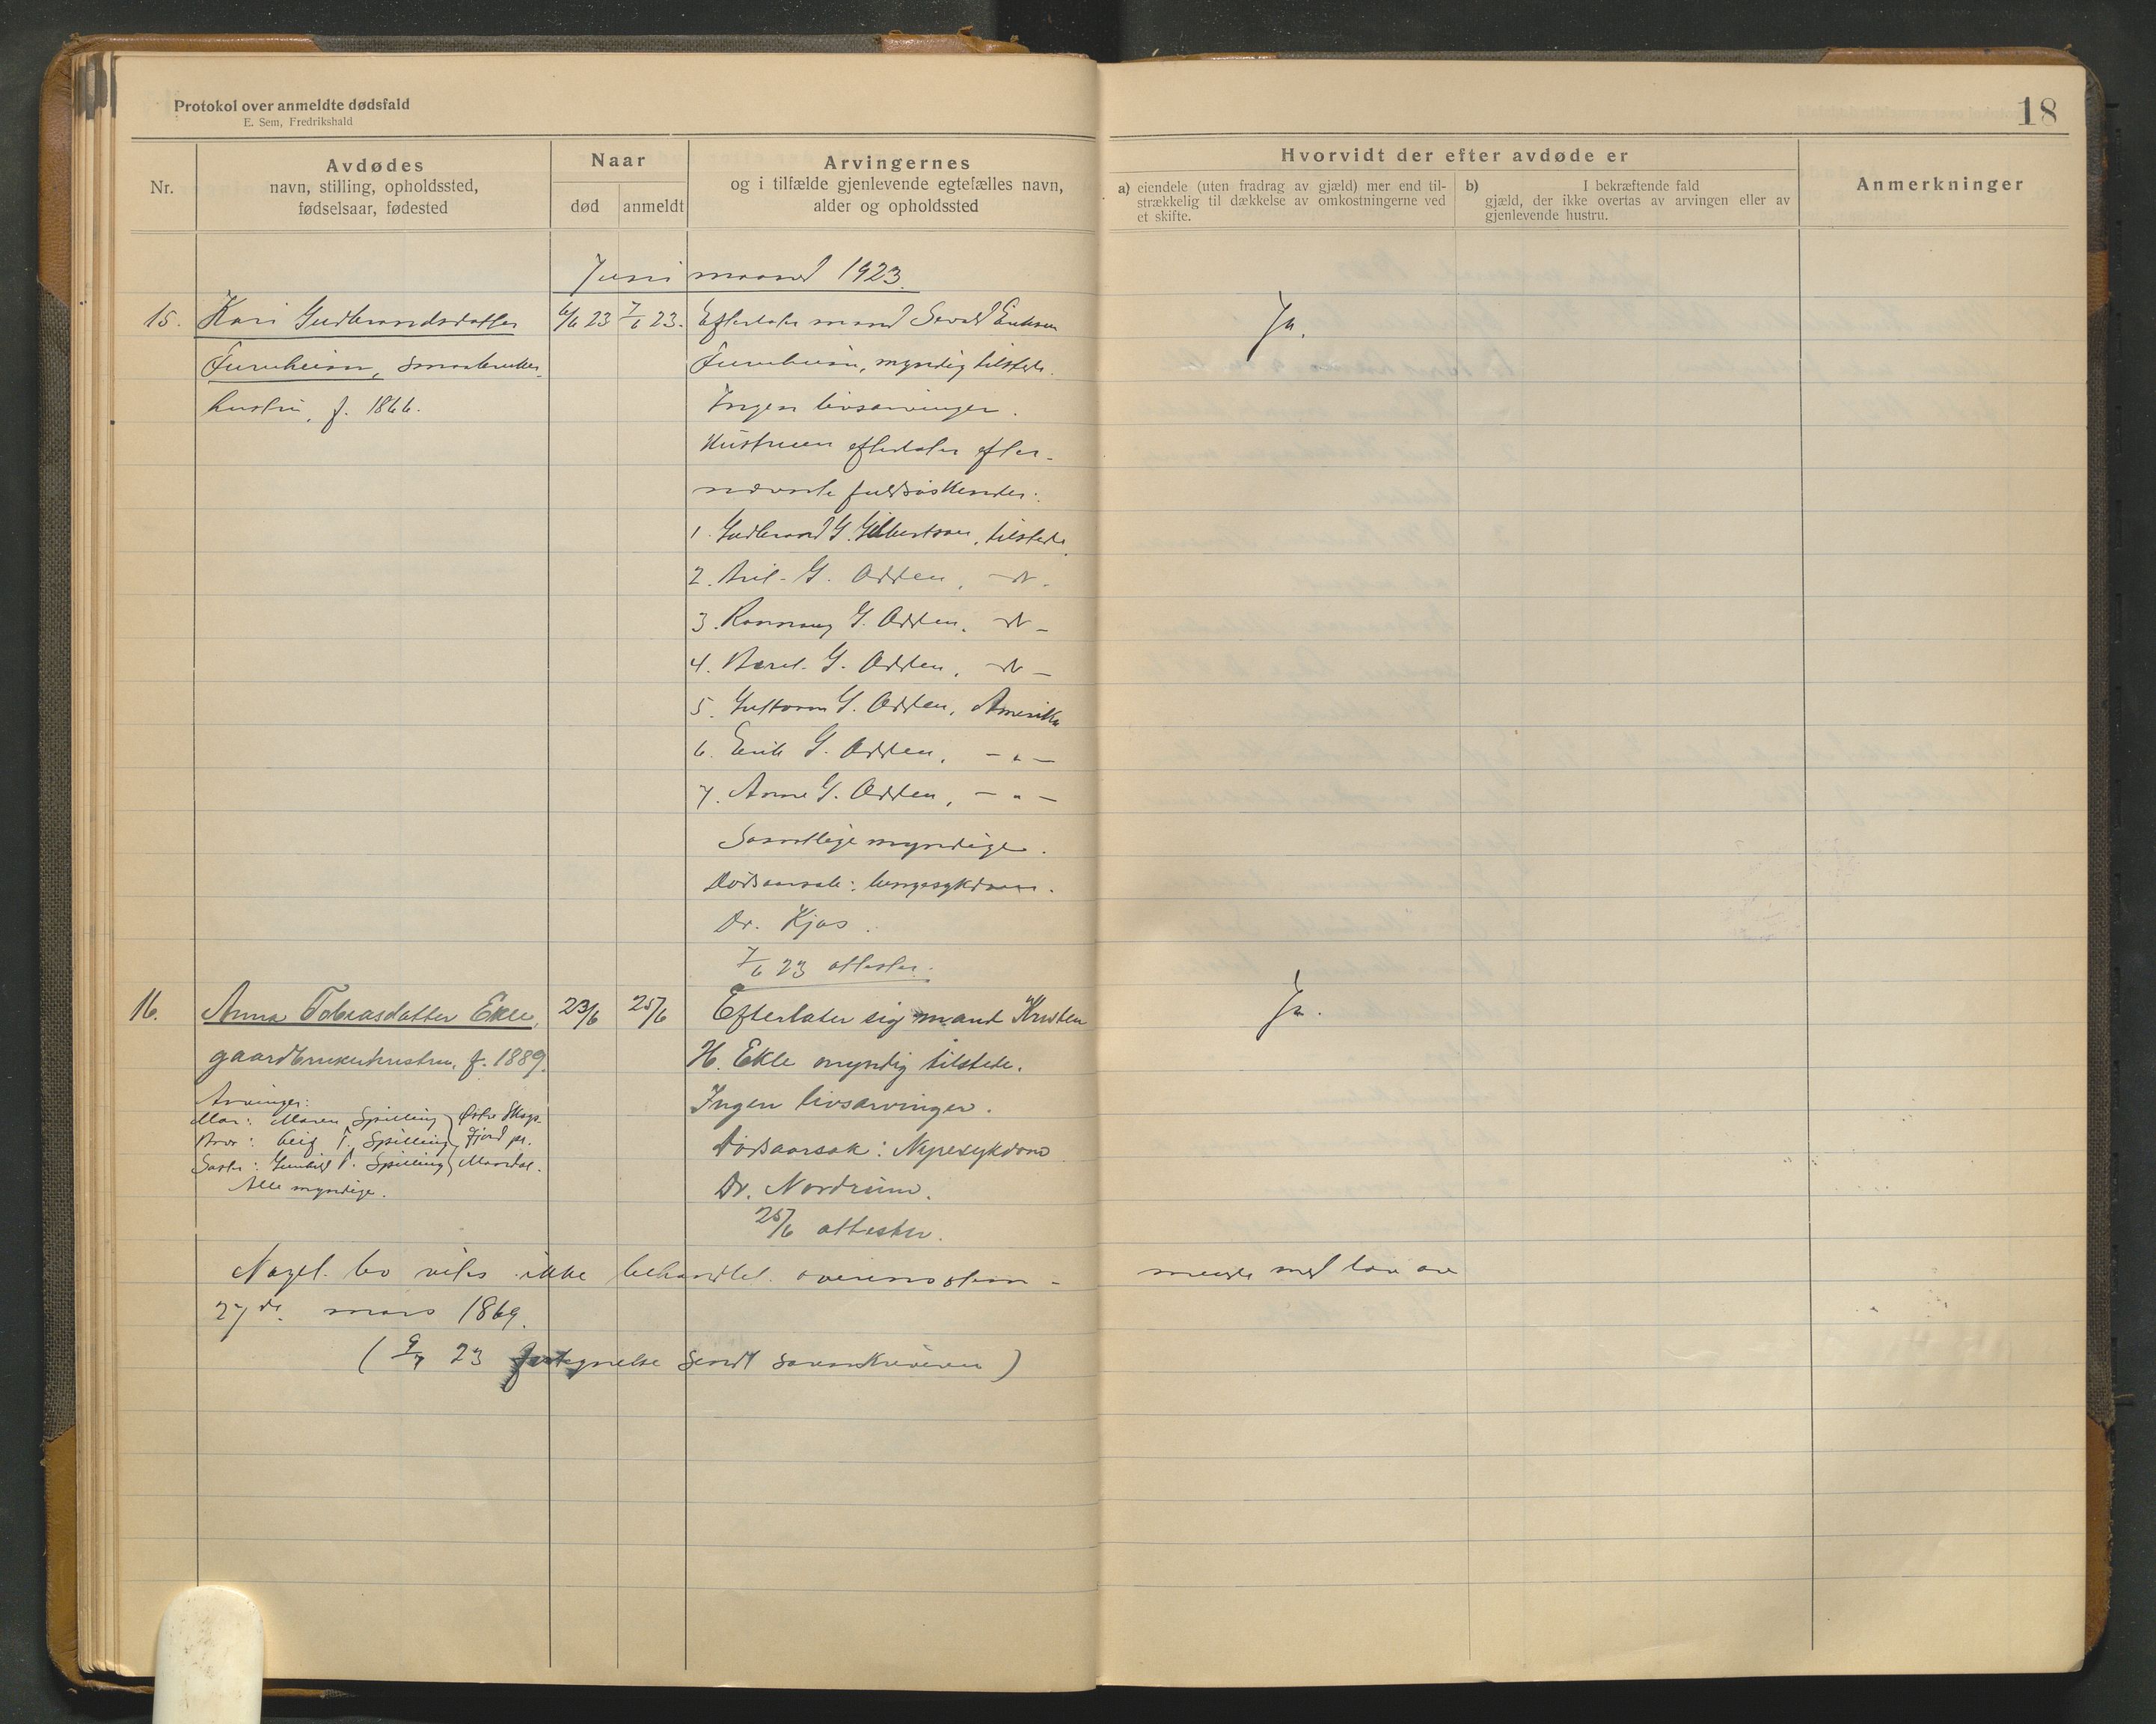 Protokol over anmeldte dødsfald
E. Sem, Fredrikshald
18
Nr.
Avdødes
navn, stilling, opholdssted,
fødselsaar, fødested
Naar
død
anmeldt
Arvingernes
og i tilfælde gjenlevende egtefælles navn,
alder og opholdssted
Hvorvidt der efter avdøde er
a) eiendele (uten fradrag av gjæld) mer end til-
strækkelig til dækkelse av omkostningerne ved
et skifte.
b) I bekræftende fald
gjæld, der ikke overtas av arvingen eller av
gjenlevende hustru.
Anmerkninger
Juni maaned 1923.
15. Kari Gudbrandsdatter 6/6 23 7/6 23. Efterlater mand Sevald Eriksen Ja.
Furuheim, smaabruker- Furuheim, myndig tilstede.
hustru, f. 1866. Ingen livsarvinger.
Hustruen efterlater efter-
nævnte fuldsøskender:
1. Gudbrand G. Gulbertson, tilstede.
2. G. Odden, -"-
3. Rønnaug G. Odden, -"-
4. G. Odden, -"-
5. Guttorm G. Odden, Amerika
6. Erik G. Odden, -"-
7. Anne G. Odden, -"-
Samtlige myndige.
Dødsaarsak: lungesykdom.
Dr. Kjos.
7/6 23 attester.
16. Anna Tobiasdatter Ekle, 23/6 25/6 Efterlater sig mand Kristen Ja.
gaardbrukerhustru, f. 1889. H. Ekle myndig tilstede.
Arvinger: Ingen livsarvinger.
Mor: Maren Spilling Østre
Bror: T. Spilling fjord pr.
Dødsaarsak: Nyresykdom
Søster: Gunhild T. Spilling Mandal.
Alle myndige.
Dr. Nordrum.
25/6 attester.
bo ikke behandlet overensstem- mende med lov av
27de mars 1869.
(9/7 23 fortegnelse sendt sorenskriveren)